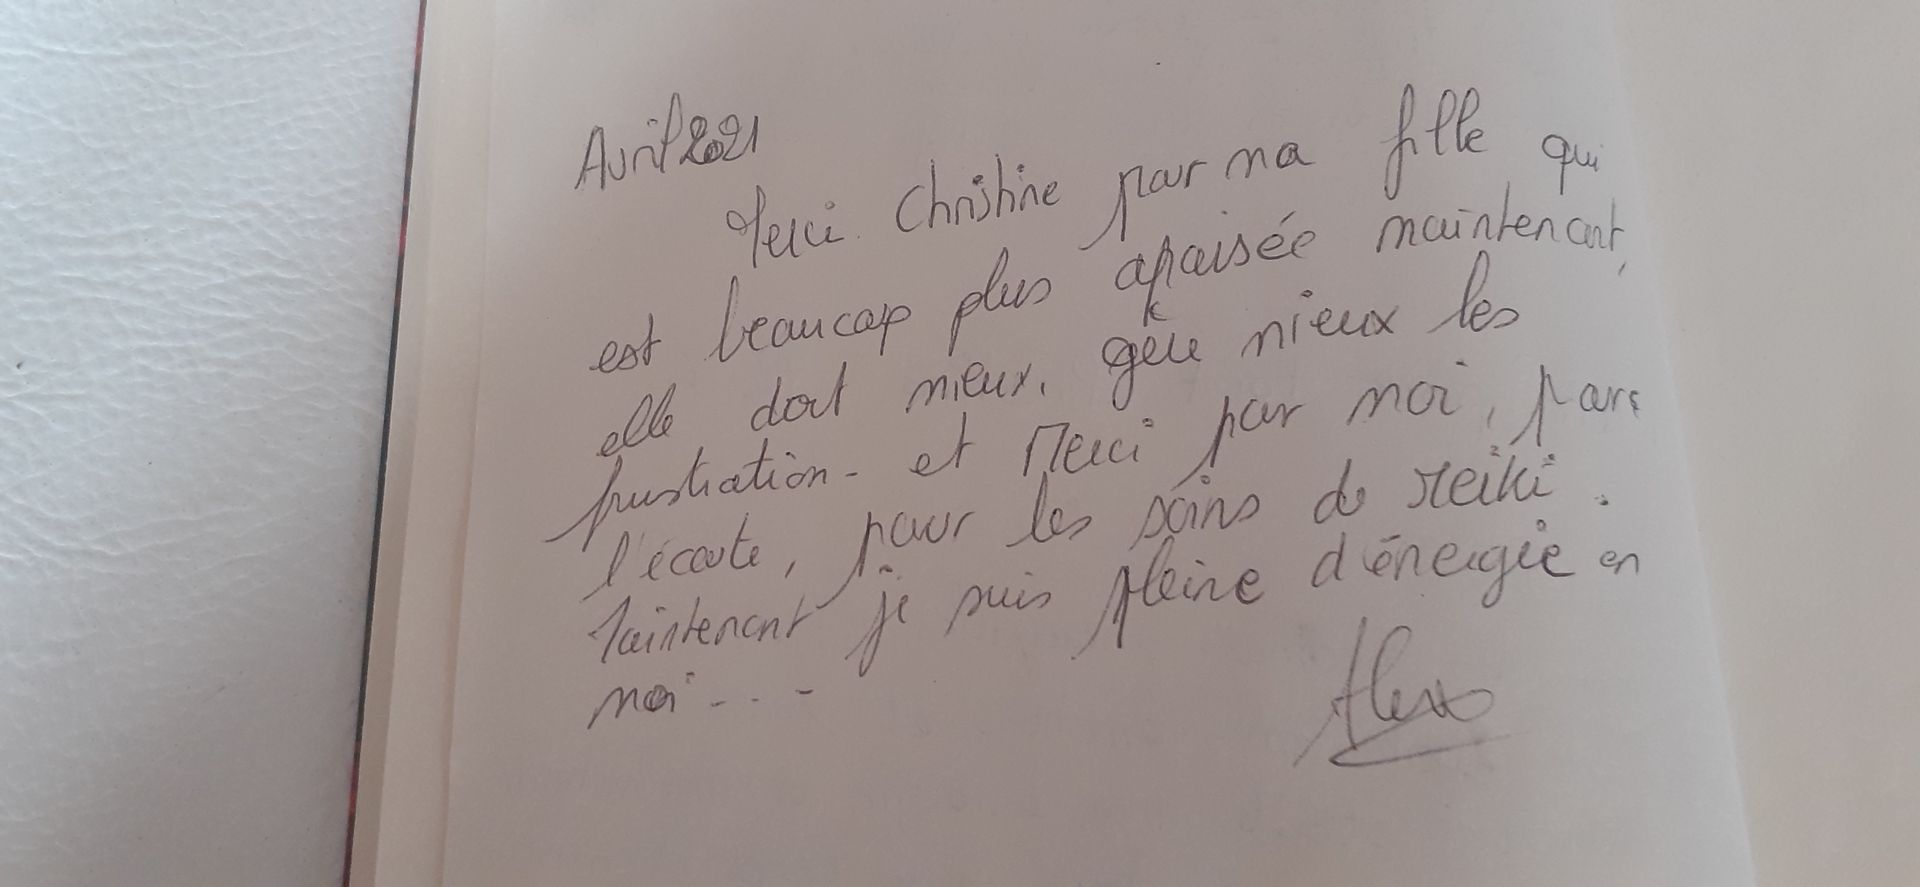 Avril 2021
Merci Christine pour ma fille qui
est beaucoup plus apaisée maintenant,
elle dort mieux, gère mieux les
frustration - et Merci pour moi, pour
l'écoute, pour les soins de reiki.
Maintenant je suis pleine d'énergie en
moi - - -
Alex